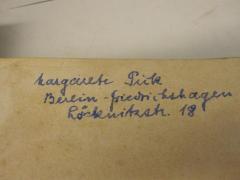 Margarete Pick
Berlin-Friedrichshagen
Löcknitzstr. 18